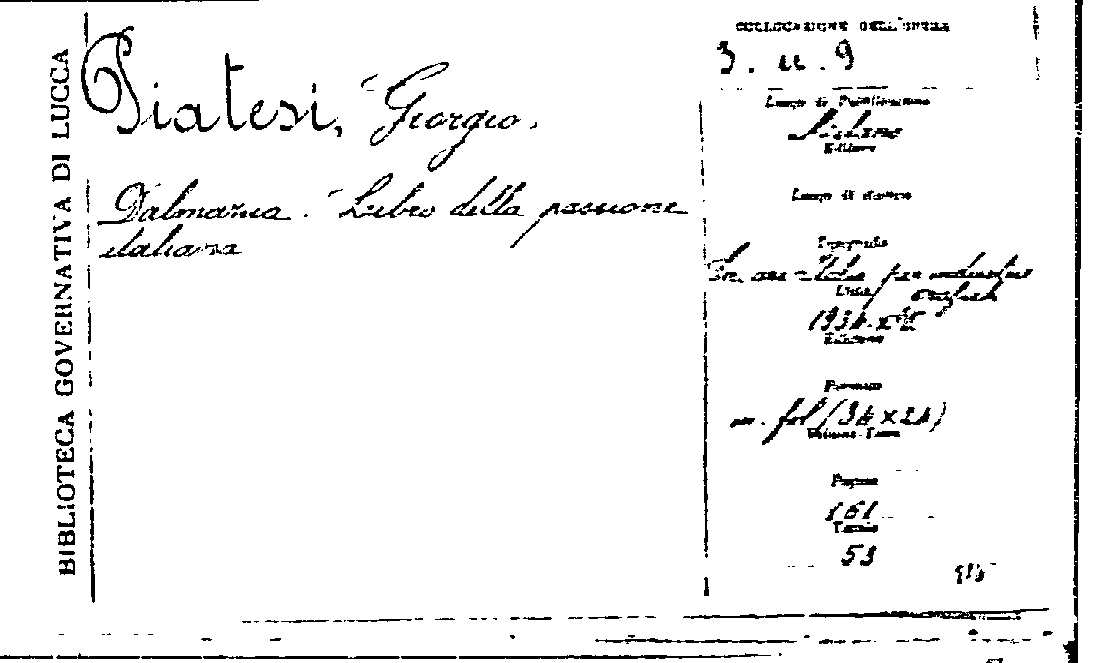 BIBLIOTECA GOVERNATIVA DI LUCCA
Piatesi, Giorgio.
Dalmazia. Libro della passione
italiana
COLLOCAZIONE DELL'OPERA
3. u. 9
Luogo di Pubblicazione
Editore
Luogo di stampa
Tipografia
per industrie
Data
1936-XV
Edizione
Formato
in fol (36x26)
Volume-Tomo
Pagine
161
Tavole
53